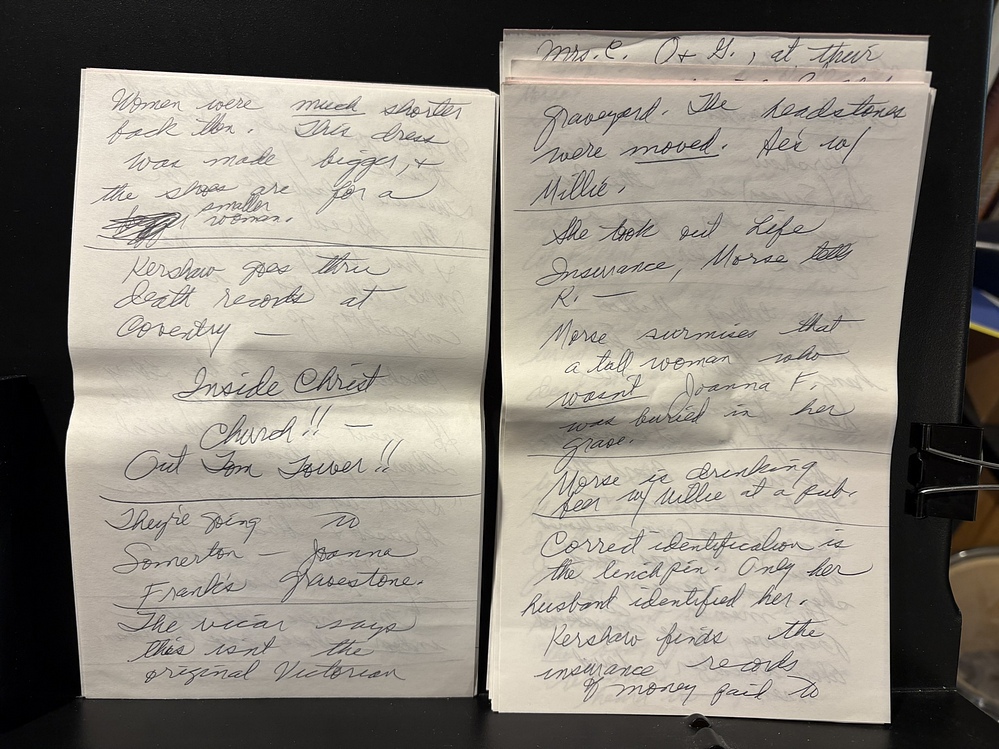 Women were much shorter
back then. This dress
was made bigger, +
the shoes are for a
smaller
woman.
Kershaw goes thru
death records at
Coventry —
Inside Christ
Church!! —
Out Tom Tower!!
They're going to
Somerton — Joanna
Frank's gravestone.
The vicar says
this isn't the
original Victorian
Mrs. C. O+ G., at their
graveyard. The headstones
were moved. He's w/
Millie.
She took out Life
Insurance, Morse tells
R. —
Morse surmises that
a tall woman who
wasn't Joanna F.
was buried in her
grave.
Morse is drinking
beer w/ Millie at a pub.
Correct identification is
the linchpin. Only her
husband identified her.
Kershaw finds the
insurance records
of money paid to